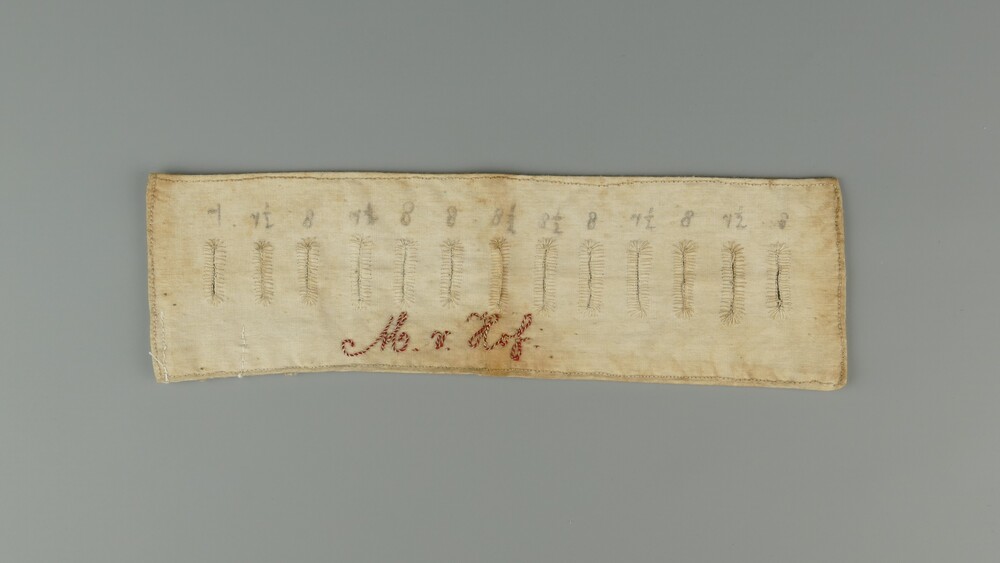 7 7½ 8 7½ 8 8 8½ 8½ 8 7½ 8 7½ 8
M. v. Hof.